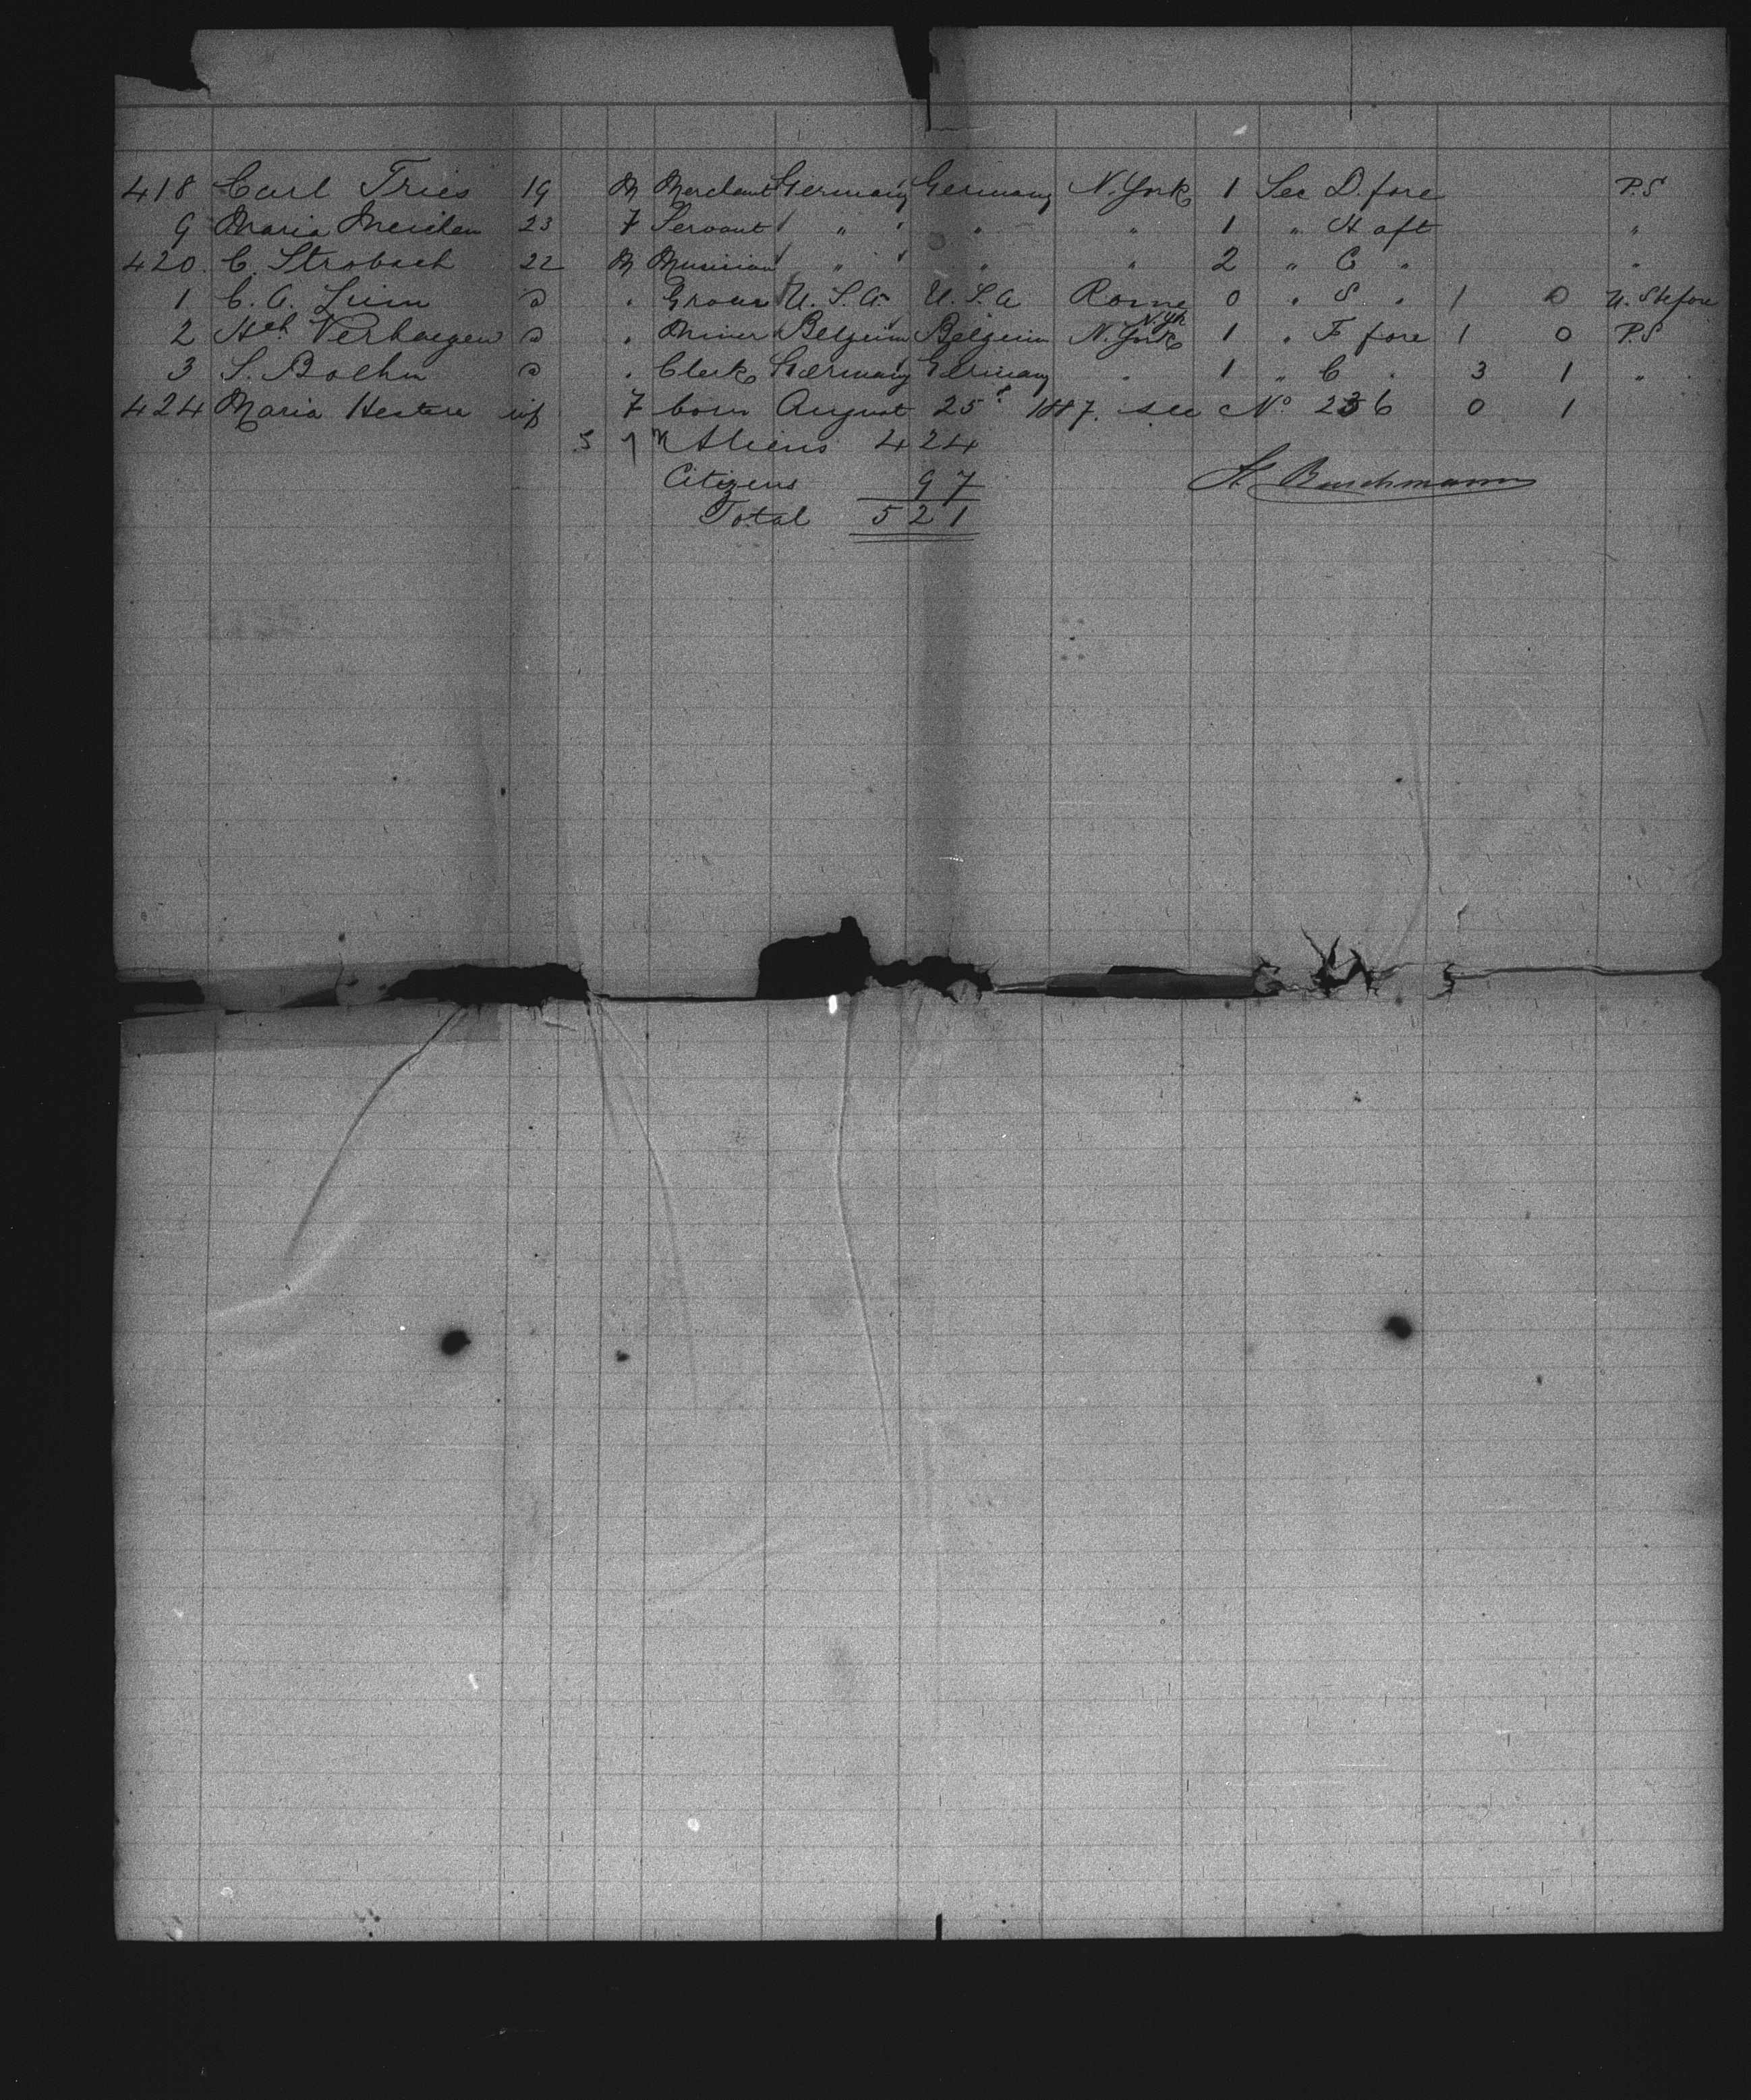 418 Carl Fries 19 M Merchant Germany Germany N. York 1 Sec D. fore P.S
9 Maria 23 F Servant " " " 1 " H aft "
420. C. Strobach 22 M Musician " " " 2 " C " "
1 C. A. " U. S. A. U. S. A Rome N.Yk 0 " S " 1 0 U. St fore
2 Hch Verhaegen " Miner Belgium Belgium N. York 1 " F fore 1 0 P.S
3 S. Boehm " Clerk Germany Germany " 1 " C " 3 1 "
424 Maria inf F born August 25t 1887. see No 236 0 1
Aliens 424
Citizens 97 H. Buschmann
Total 521